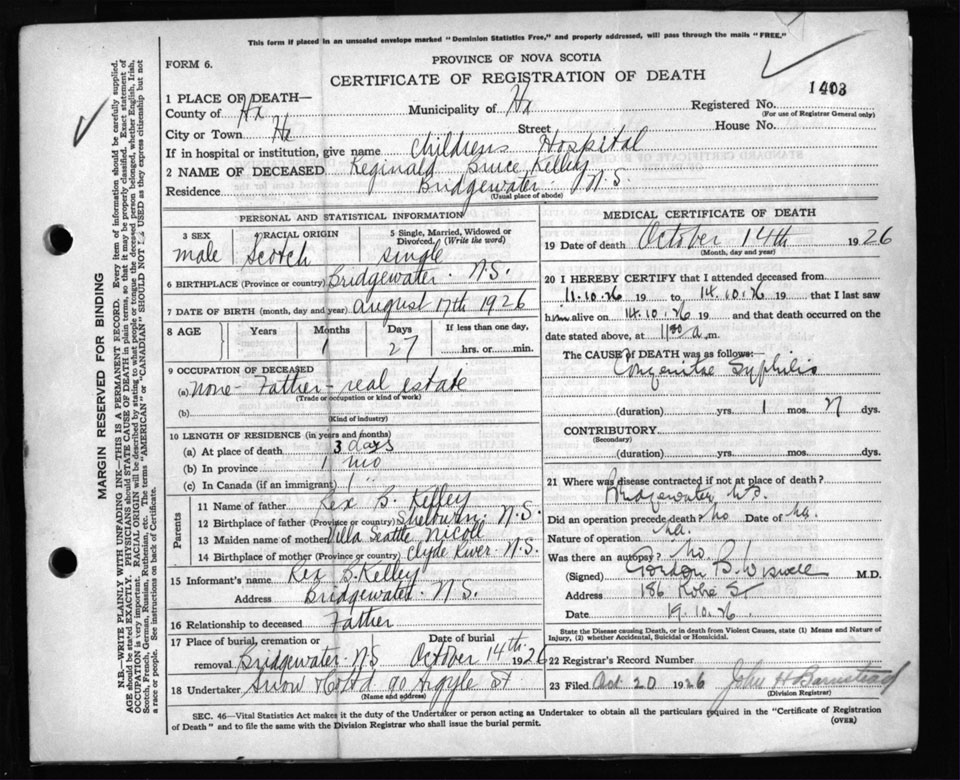 This form if placed in an unsealed envelope marked "Dominion Statistics Free," and properly addressed, will pass through the mails "FREE."
FORM 6.
PROVINCE OF NOVA SCOTIA
CERTIFICATE OF REGISTRATION OF DEATH
1403
1 PLACE OF DEATH—
County of Hx Municipality of Hx Registered No.
(For use of Registrar General only)
City or Town Hx Street House No.
If in hospital or institution, give name Childrens Hospital
2 NAME OF DECEASED Reginald Bruce Kelley
Residence Bridgewater N.S.
(Usual place of abode)
PERSONAL AND STATISTICAL INFORMATION
3 SEX 4 RACIAL ORIGIN 5 Single, Married, Widowed or Divorced. (Write the word)
male Scotch single
6 BIRTHPLACE (Province or country) Bridgewater. N.S.
7 DATE OF BIRTH (month, day and year) August 17th 1926
8 AGE Years Months Days If less than one day,
1 27 hrs. or min.
9 OCCUPATION OF DECEASED
(a) none - Father - real estate
(Trade or occupation or kind of work)
(b)
(Kind of industry)
10 LENGTH OF RESIDENCE (in years and months)
(a) At place of death 3 days
(b) In province 1 mo
(c) In Canada (if an immigrant) 1 "
Parents
11 Name of father Rex B. Kelley
12 Birthplace of father (Province or country) N.S.
13 Maiden name of mother Villa Seattle Nicoll
14 Birthplace of mother (Province or country) Clyde River. N.S.
15 Informant's name Rex B. Kelley
Address Bridgewater. N.S.
16 Relationship to deceased Father
17 Place of burial, cremation or removal. Date of burial
Bridgewater. N.S October 14th 1926
18 Undertaker Snow & Co Ltd 90 Argyle St
(Name and address)
MEDICAL CERTIFICATE OF DEATH
19 Date of death October 14th 1926
(Month, day and year)
20 I HEREBY CERTIFY that I attended deceased from
11.10.26 19 to 14.10.26 19 that I last saw
him alive on 14.10.26 19 and that death occurred on the
date stated above, at a.m.
The CAUSE of DEATH was as follows:
Congenital Syphilis
(duration) yrs. 1 mos. 27 dys.
CONTRIBUTORY
(Secondary)
(duration) yrs. mos. dys.
21 Where was disease contracted if not at place of death?
Bridgewater N.S.
Did an operation precede death? No Date of na.
Nature of operation na.
Was there an autopsy? No.
(Signed) Gordon B. Wiswell M.D.
Address 186 Robie St
Date 19.10.26
State the Disease causing Death, or in death from Violent Causes, state (1) Means and Nature of Injury, (2) whether Accidental, Suicidal or Homicidal.
22 Registrar's Record Number
23 Filed Oct 20 1926 John H Barnstead
(Division Registrar)
SEC. 46—Vital Statistics Act makes it the duty of the Undertaker or person acting as Undertaker to obtain all the particulars required in the "Certificate of Registration
of Death" and to file the same with the Division Registrar who shall issue the burial permit.
(OVER)
MARGIN RESERVED FOR BINDING
N.B.—WRITE PLAINLY WITH UNFADING INK—THIS IS A PERMANENT RECORD. Every item of information should be carefully supplied.
AGE should be stated EXACTLY. PHYSICIANS should STATE CAUSE OF DEATH in plain terms, so that it may be properly classified. Exact statement of
OCCUPATION is very important. RACIAL ORIGIN will be described by stating to what people or tongue the deceased person belonged, whether English, Irish,
Scotch, French, German, Russian, Ruthenian, etc. The terms "AMERICAN" or "CANADIAN" SHOULD NOT BE USED as they express citizenship but not
a race or people. See instructions on back of Certificate.